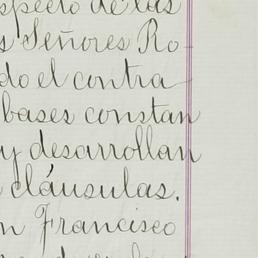 specto de las
s Señores Ro-
do el contra
bases constan
y desarrollan
cláusulas.
n Francisco